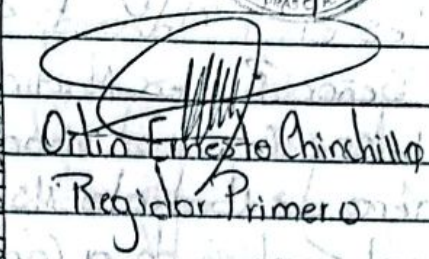 Ortin Ernesto Chinchilla
Regidor Primero